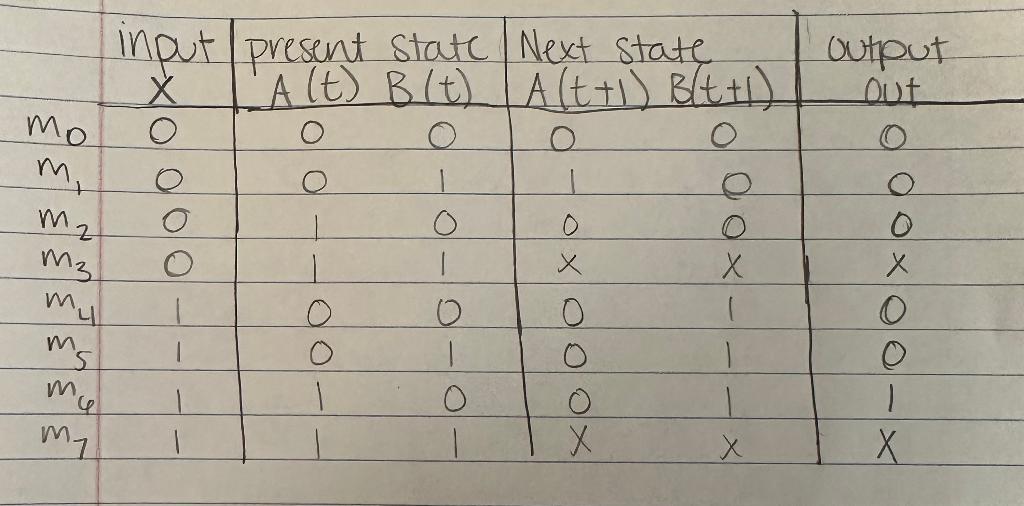 input present state Next state output
X A(t) B(t) A(t+1) B(t+1) out
m0 0 0 0 0 0 0
m1 0 0 1 1 0 0
m2 0 1 0 0 0 0
m3 0 1 1 X X X
m4 1 0 0 0 1 0
m5 1 0 1 0 1 0
m6 1 1 0 0 1 1
m7 1 1 1 X X X